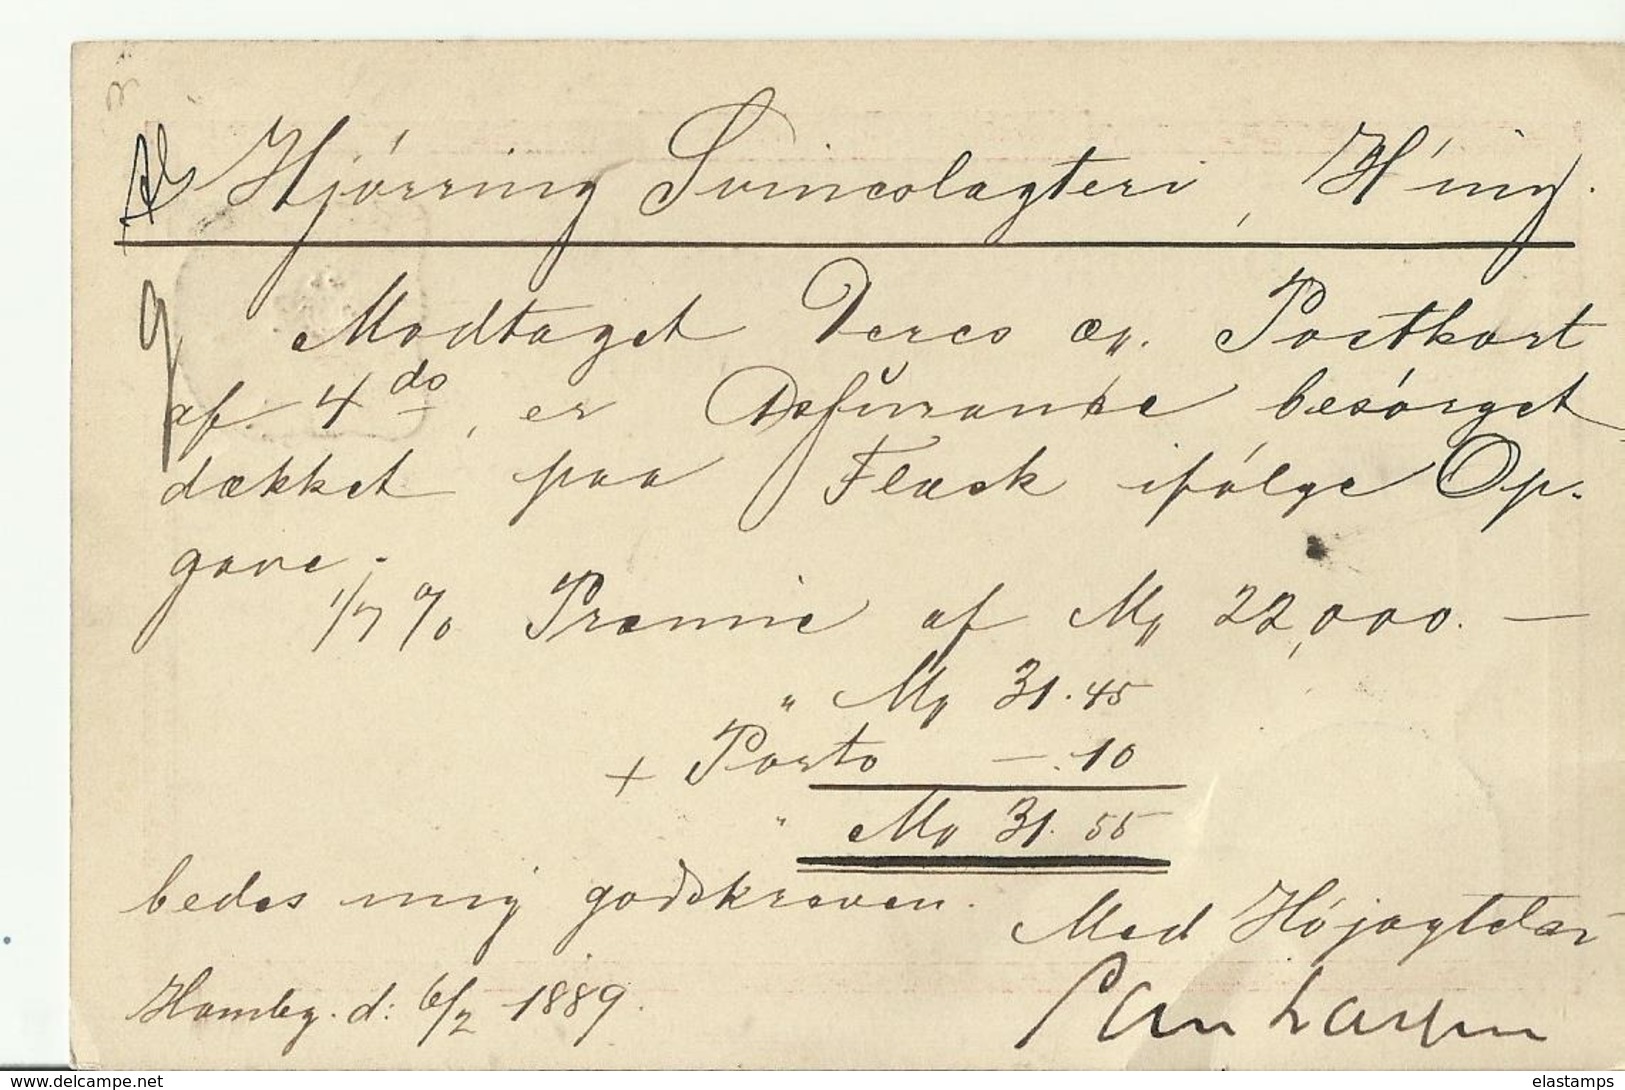 Hjørring Svineslagteri, H'ing.
Modtaget Deres ær. Postkort
af 4 do, er Assurance besørget
dækket paa Flæsk ifølge Op-
gave.
1/7 % Præmie af Mk 22,000. —
" Mk 31.45
+ Porto — .10
" Mk 31.55
bedes mig godskreven.
Med Højagtelse
Hambg. d: 6/2 1889.
Larsen
www.delcampe.net
elastamps